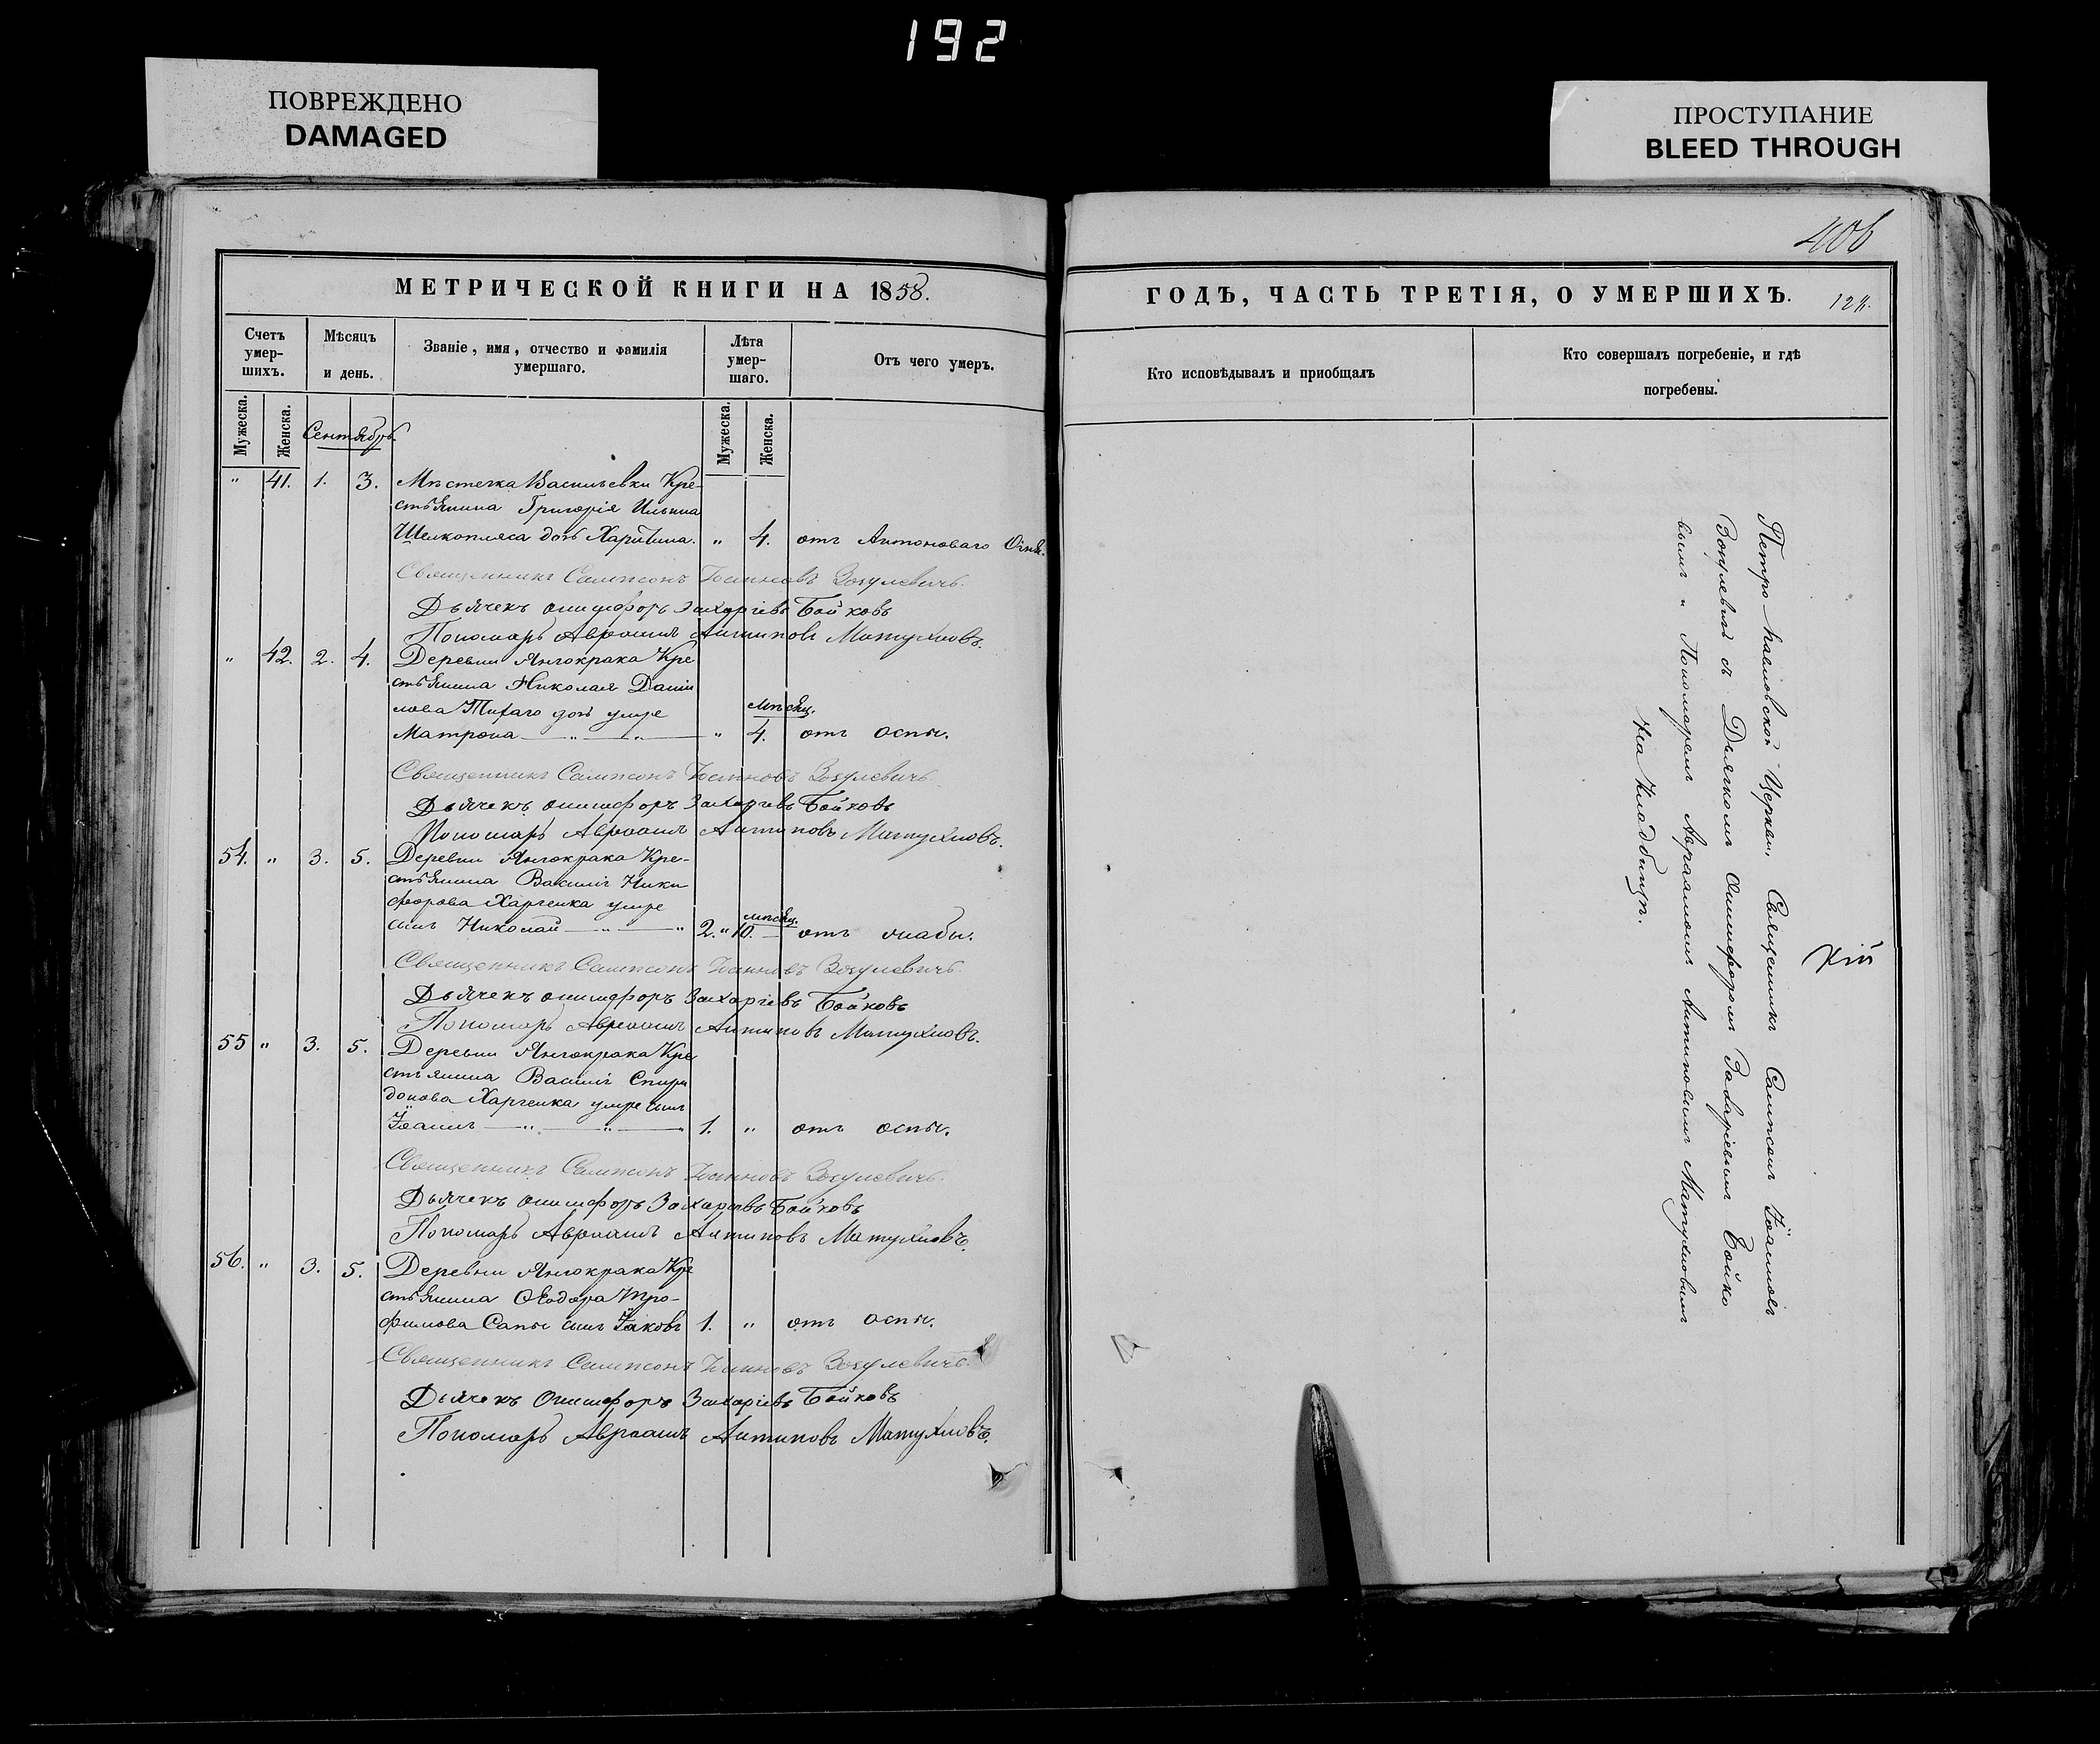 192
ПОВРЕЖДЕНО
DAMAGED
ПРОСТУПАНИЕ
BLEED THROUGH
406
МЕТРИЧЕСКОЙ КНИГИ НА 1858.
ГОДЪ, ЧАСТЬ ТРЕТІЯ, О УМЕРШИХЪ.
Счетъ умер-шихъ.
Мѣсяцъ и день.
Званіе, имя, отчество и фамилія умершаго.
Лѣта умер-шаго.
Отъ чего умеръ.
Кто исповѣдывалъ и приобщалъ
Кто совершалъ погребеніе, и гдѣ погребены.
Мужеска. Женска.
Сентябрь
Мужеска. Женска.
" 41. 1. 3. Мѣстечка Васильевки Кре-
стьянина Григорія Ильина
Шелкопляса дочь Харитина. " 4. отъ Антоноваго Огня.
Священникъ Сампсонъ Іоанновъ Зозулевичъ.
Дьячекъ Онисифоръ Захаріевъ Бойковъ
Пономарь Авраамъ Антиповъ Матухновъ.
" 42. 2. 4. Деревни Янчокрака Кре
стьянина Николая Даніи
лова Тихаго дочь умре
мѣсяц.
Матрона " " " 4. отъ оспы.
Священникъ Сампсонъ Іоанновъ Зозулевичъ.
Дьячекъ Онисифоръ Захаріевъ Бойковъ
Пономарь Авраамъ Антиповъ Матухновъ.
54. " 3. 5. Деревни Янчокрака Кре-
стьянина Василія Ники
форова Харченка умре
мѣсяц.
сынъ Николай " " 2. " 10. отъ слабы.
Священникъ Сампсонъ Іоанновъ Зозулевичъ.
Дьячекъ Онисифоръ Захаріевъ Бойковъ
Пономарь Авраамъ Антиповъ Матухновъ.
55 " 3. 5. Деревни Янчокрака Кре
стьянина Василія Спири
донова Харченка умре сынъ
Іоаннъ " " 1. " отъ оспы.
Священникъ Сампсонъ Іоанновъ Зозулевичъ.
Дьячекъ Онисифоръ Захаріевъ Бойковъ
Пономарь Авраамъ Антиповъ Матухновъ.
56. " 3. 5. Деревни Янчокрака Кре
стьянина Ѳеодора Тро-
фимова Сапы сынъ Іаковъ 1. " отъ оспы.
Священникъ Сампсонъ Іоанновъ Зозулевичъ.
Дьячекъ Онисифоръ Захаріевъ Бойковъ
Пономарь Авраамъ Антиповъ Матухновъ.
Петро Павловской Церкви, Священникъ Сампсонъ Іоанновъ
Зозулевичъ съ Дьячкомъ Онисифоромъ Захаріевымъ Бойко
вымъ " Пономаремъ Авраамомъ Антиповымъ Матухновымъ
На Кладбищѣ.